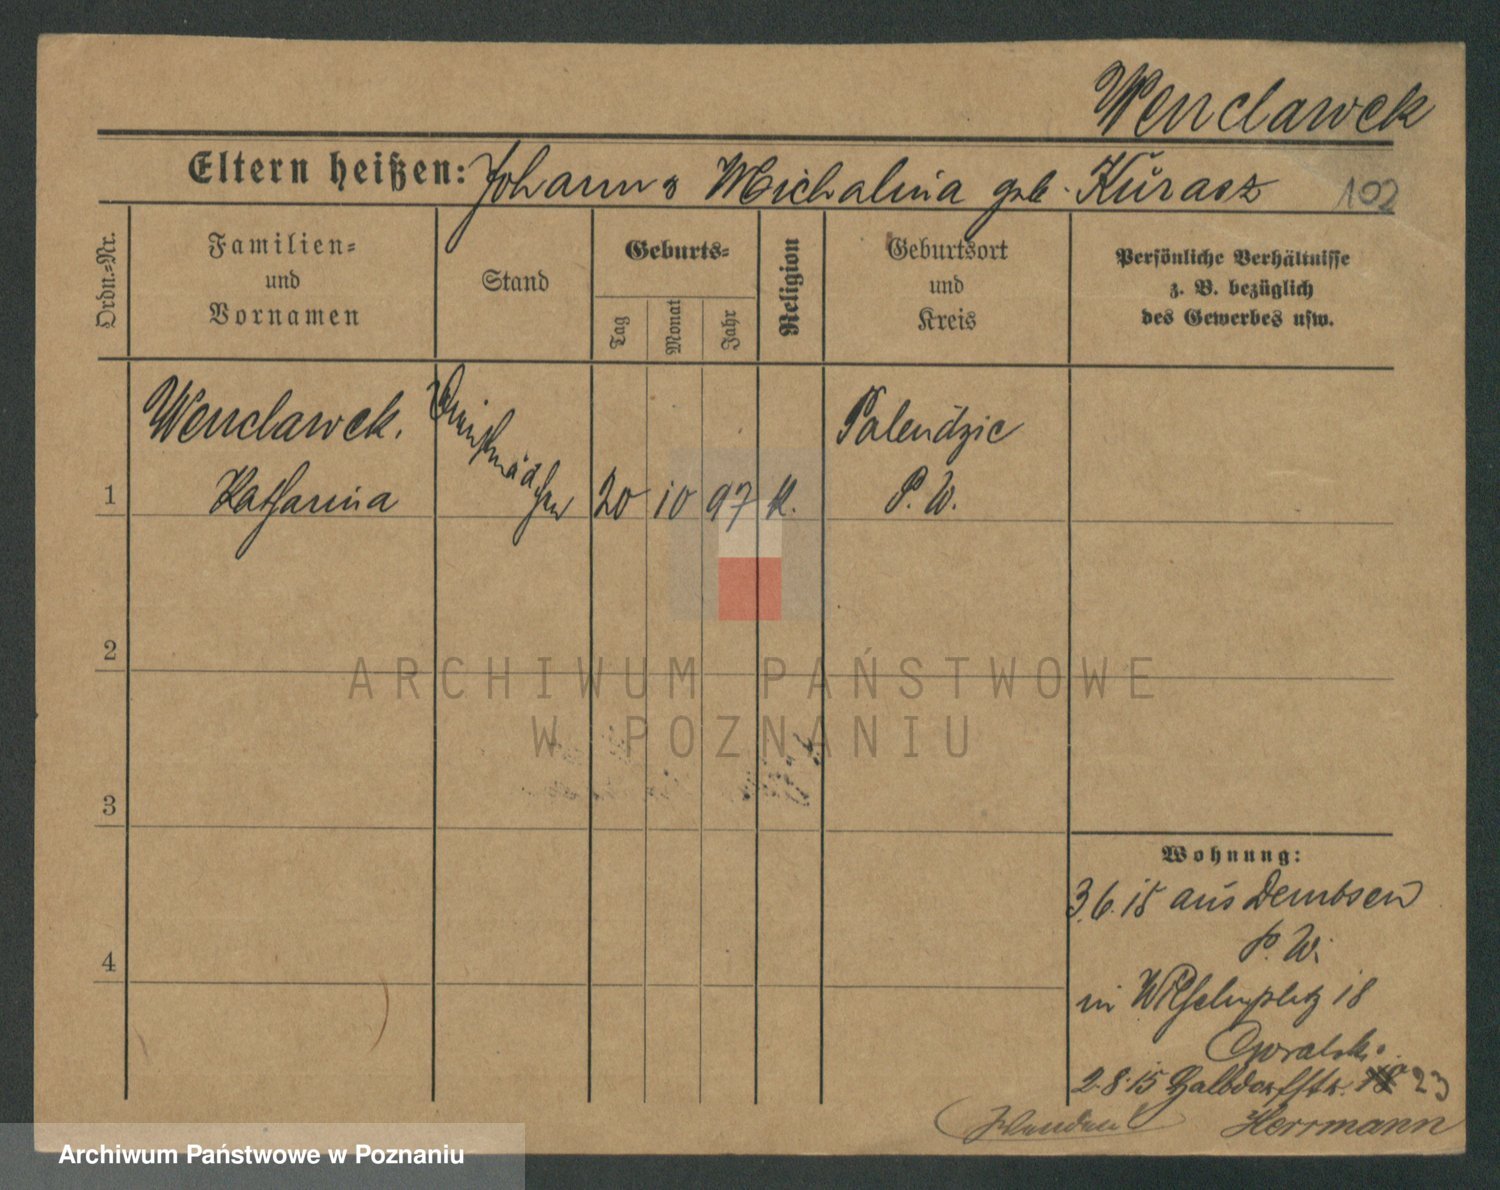 Wenclawek
Eltern heißen: Johann & Michalina geb. Kŭrasz
102
Ordn.=Nr.
Familien=
und
Vornamen
Stand
Geburts=
Tag
Monat
Jahr
Religion
Geburtsort
und
Kreis
Persönliche Verhältnisse
z. B. bezüglich
des Gewerbes usw.
Wenclawek.
Katharina
Dienstmädchen
1
20
10
97
K.
Palendzie
P. W.
2
ARCHIWUM PAŃSTWOWE
W POZNANIU
3
4
Wohnung:
3.6.15 aus Dembsen
P. W.
in Wilhelmplatz 18
Goralski
2.8.15 Halbdorfstr. 23
Herrmann
Archiwum Państwowe w Poznaniu